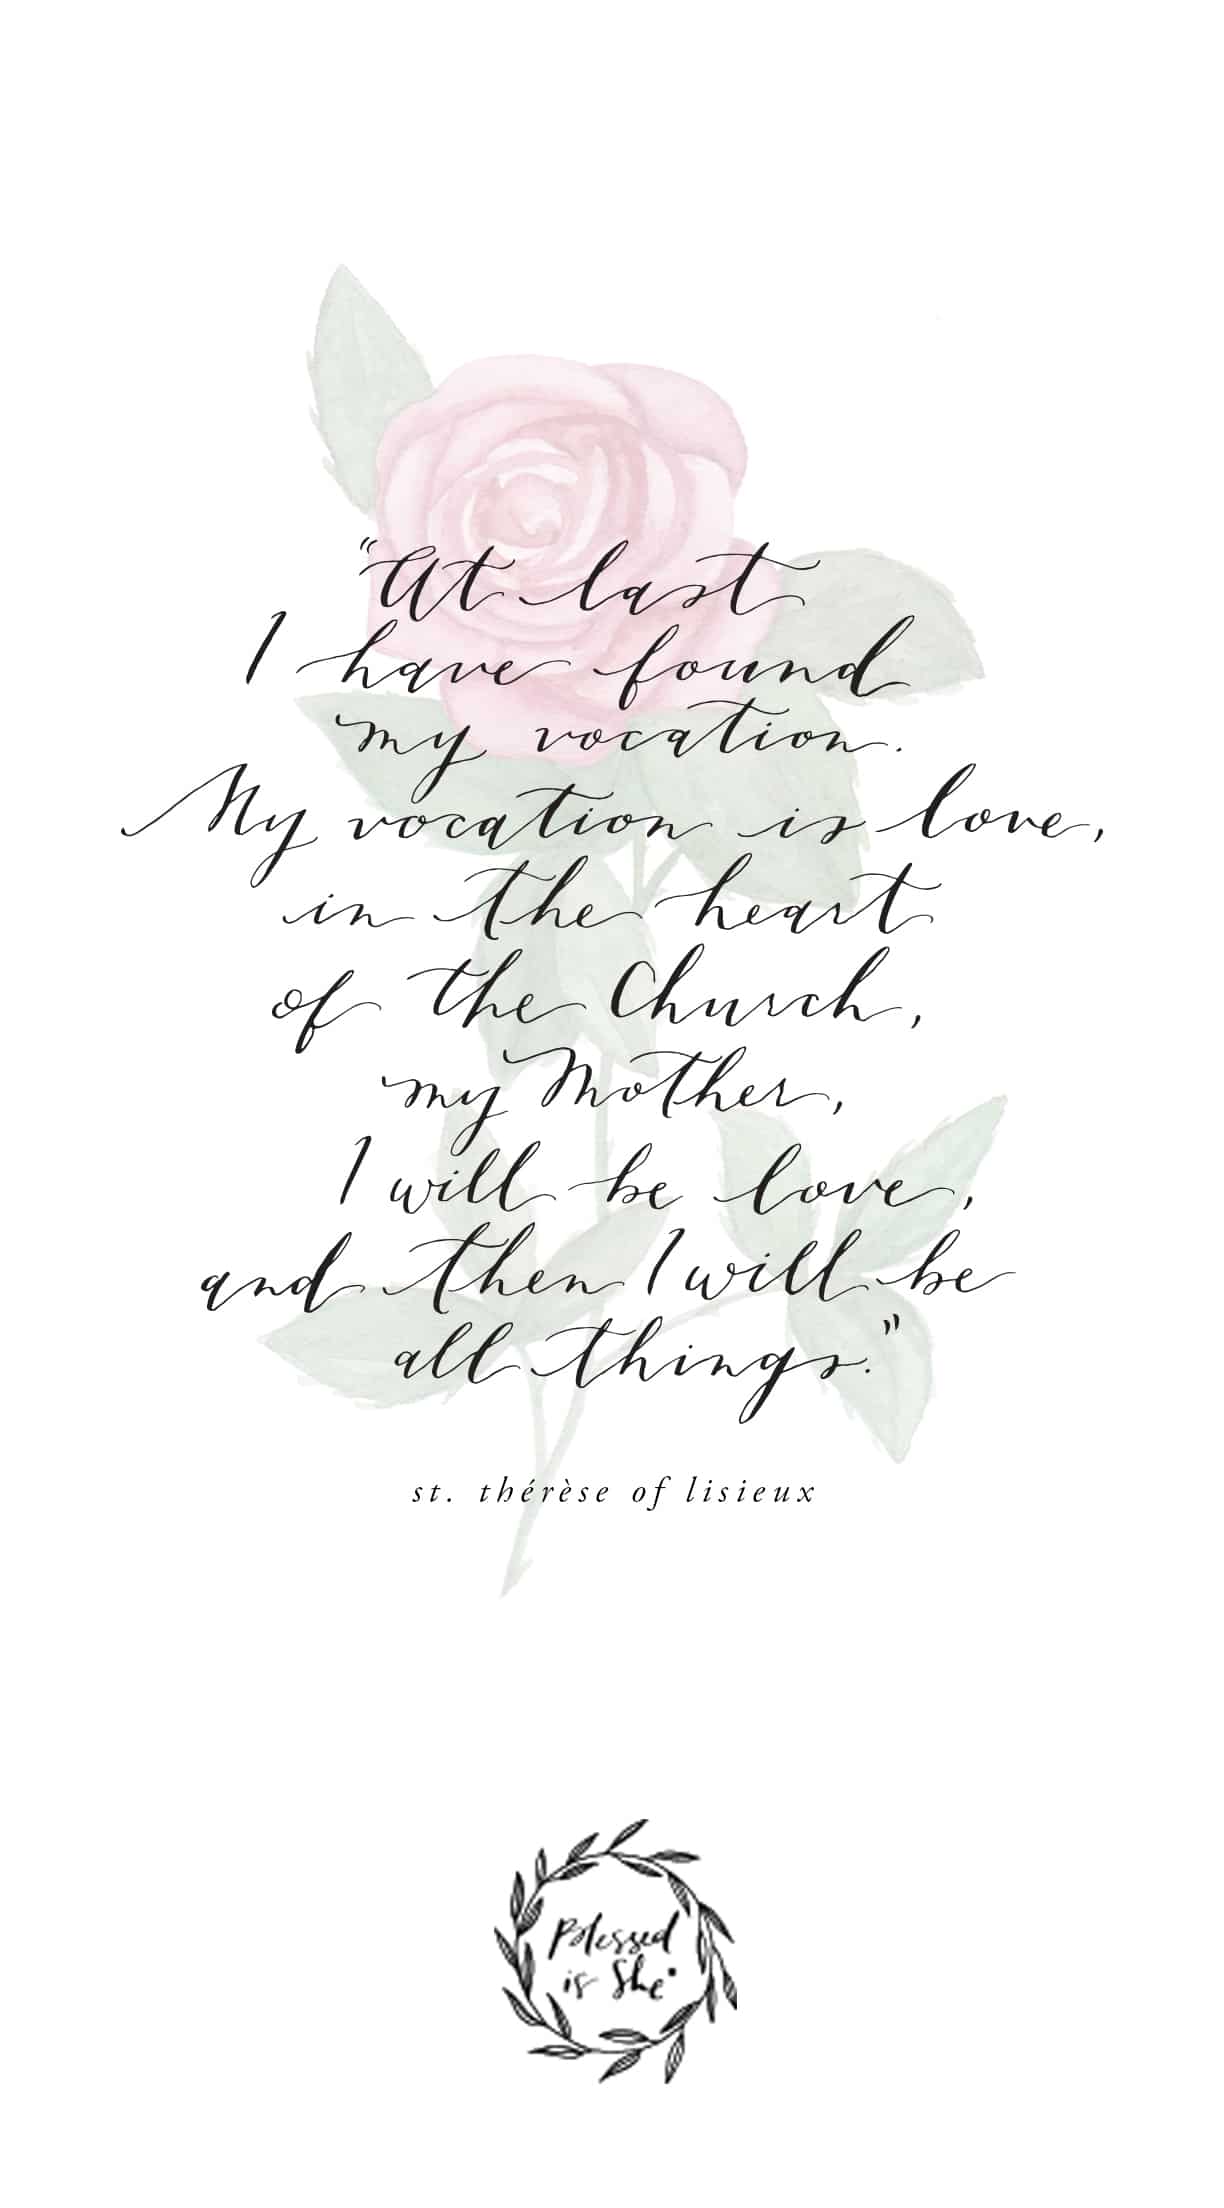 "At last
I have found
my vocation.
My vocation is love,
in the heart
of the Church,
my Mother,
I will be love,
and then I will be
all things."
st. thérèse of lisieux
Blessed
is She